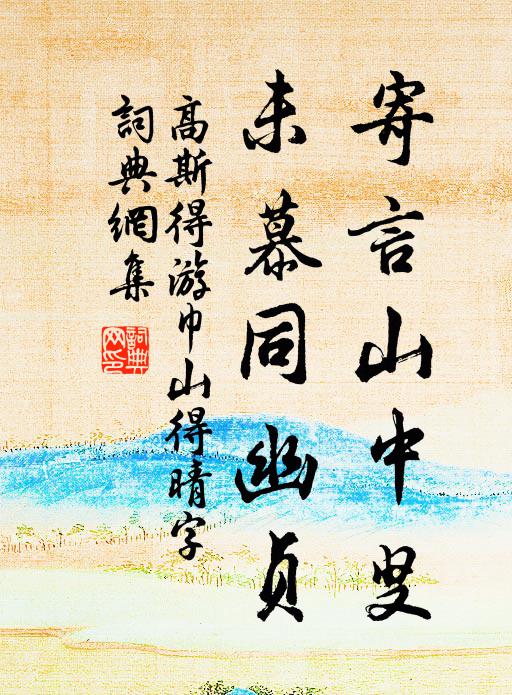 寄言山中叟
未慕同幽貞
高斯得游巾山得晴字
詞典網集
詞典网印